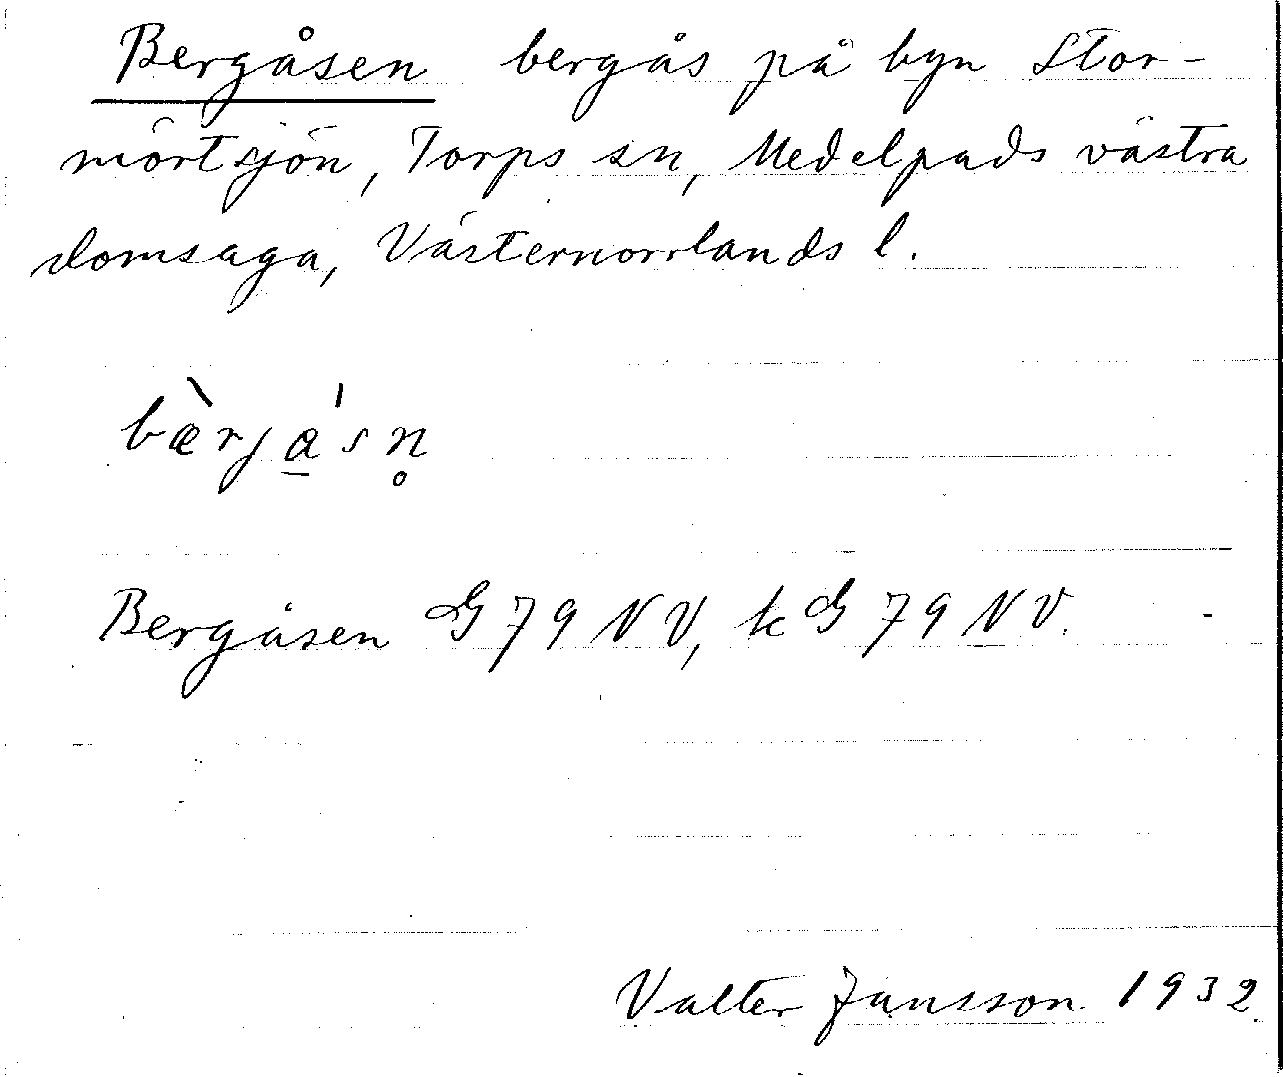 Bergåsen bergås på byn Stor-
mörtsjön, Torps sn, Medelpads västra
domsaga, Västernorrlands l.
bæ̀rja̱'sn̥
Bergåsen G 79 NV, k G 79 NV.
Valter Jansson 1932